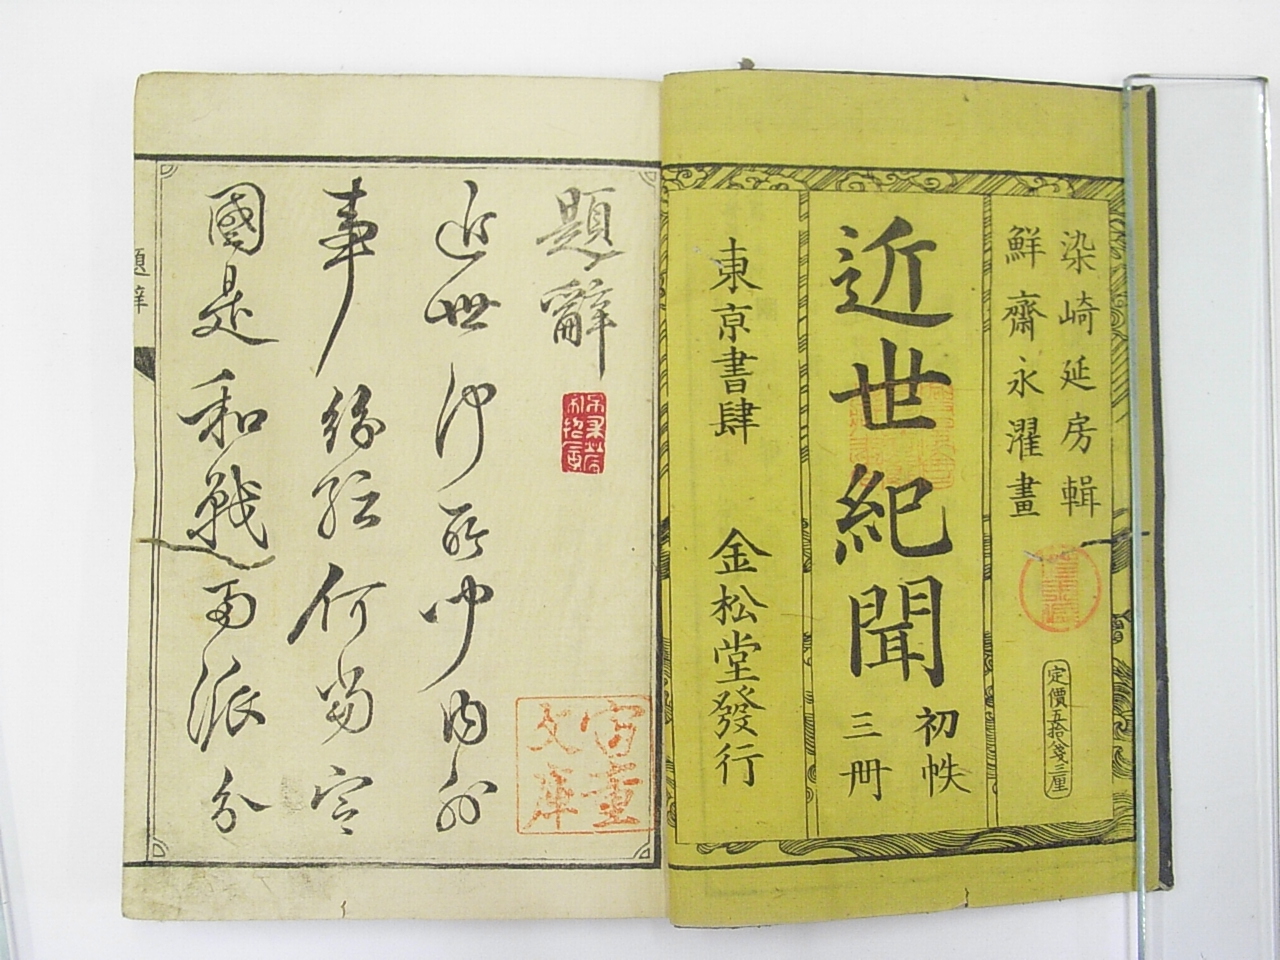 染崎延房輯
鮮齋永濯畫
定價五拾戔三厘
近世紀聞
初帙
三冊
東京書肆 金松堂發行
題辭
近世何所聞内外
事紛紜何易定
國是和戰兩派分
宮重文庫
題辭